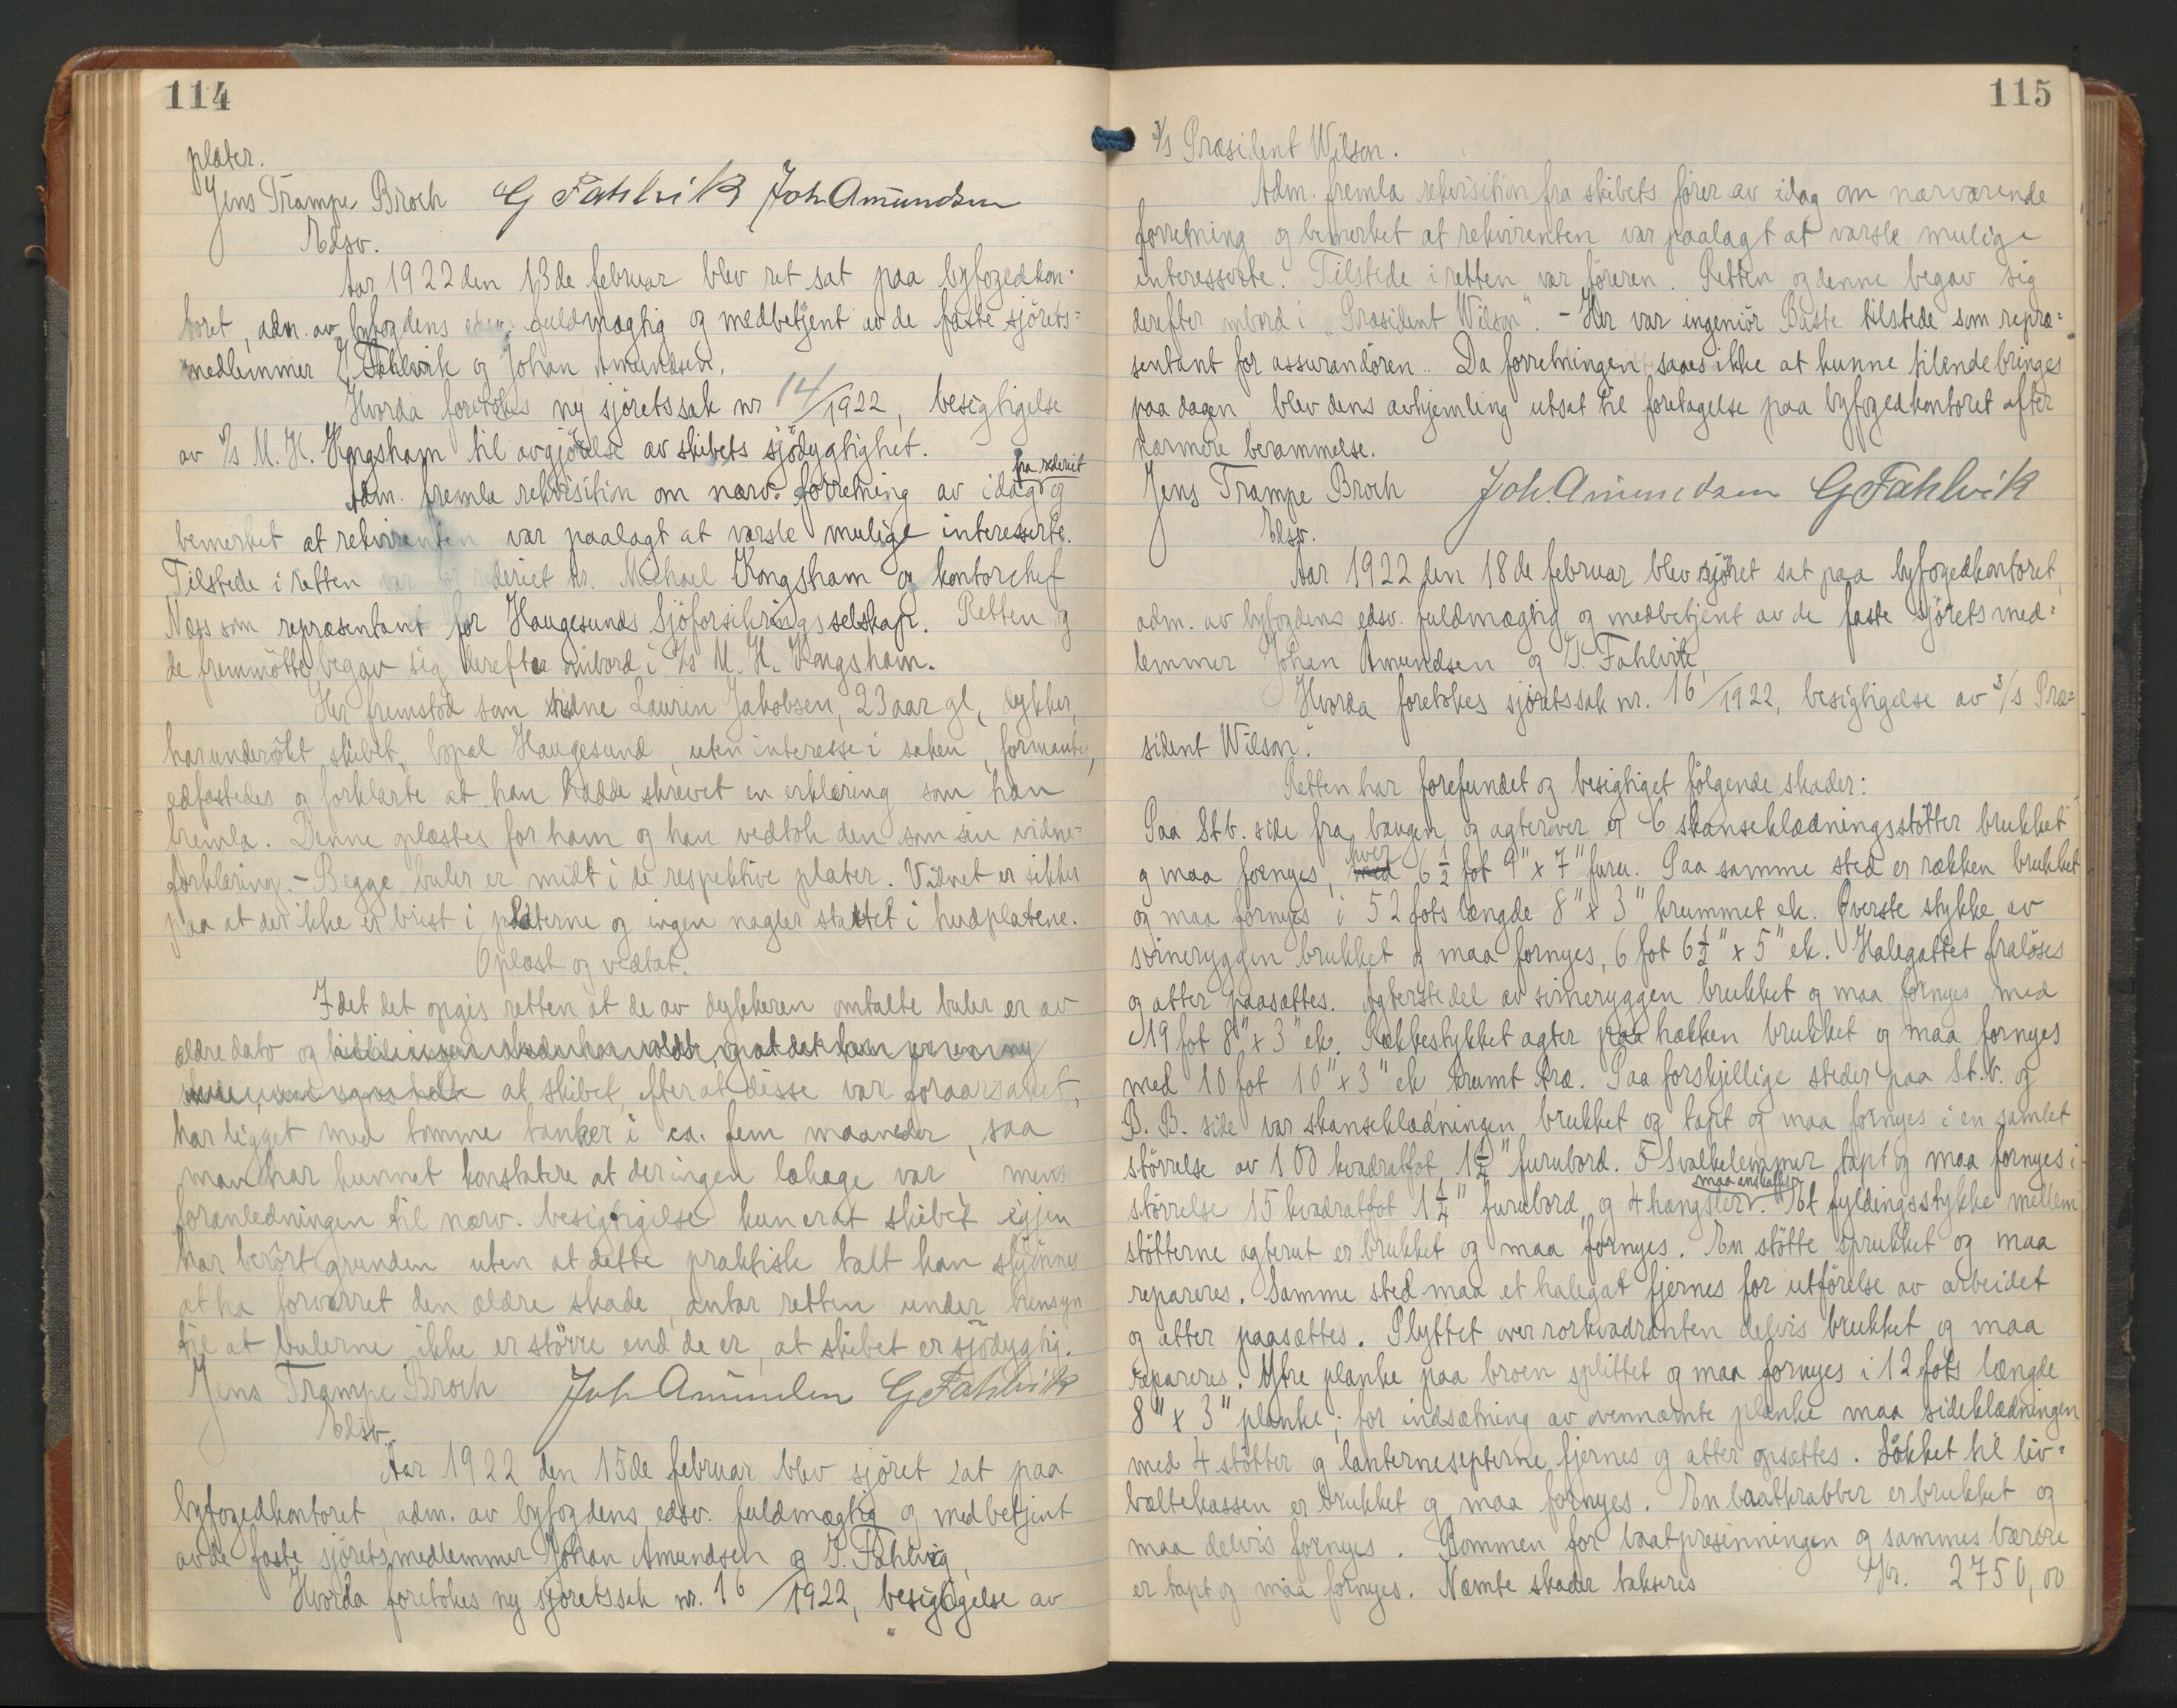 114
plater.
Jens Trampe Broch G Fahlvik Joh Amundsen
Edsv.
Aar 1922 den 13de februar blev ret sat paa byfogedkon-
toret, adm. av byfogdens edsv. fuldmægtig og medbetjent av de faste sjörets-
medlemmer G. Fahlvik og Johan Amundsen.
Hvorda foretokes ny sjöretssak nr 14/1922, besigtigelse
av s/s M. H. Kongsham til avgjörelse av skibets sjödygtighet.
fra rederiet
Adm. fremla rekvisition om nærv. forretning av idag og
bemerket at rekvirenten var paalagt at varsle mulige interesserte.
Tilstede i retten var for rederiet hr. Michael Kongsham og kontorchef
Næss som repræsentant for Haugesunds Sjöforsikringsselskap. Retten og
de fremmötte begav sig derefter ombord i s/s M. H. Kongsham.
Her fremstod som vidne Laurin Jakobsen, 23 aar gl, dykker,
har undersökt skibet, bopæl Haugesund, uten interesse i saken, formantes,
edfæstedes og forklarte at han hadde skrevet en erklæring som han
fremla. Denne oplæstes for ham og han vedtok den som sin vidne-
forklaring. - Begge buler er midt i de respektive plater. Vidnet er sikker
paa at der ikke er brist i platerne og ingen nagler slaktet i hudplatene.
Oplæst og vedtat.
Idet det opgis retten at de av dykkeren omtalte buler er av
ældre dato og
at skibet, efter at disse var foraarsaket,
har ligget med tomme tanker i ca. fem maaneder, saa
man har kunnet konstatere at der ingen lækage var mens
foranledningen til nærv. besigtigelse kun er at skibet igjen
har berört grunden uten at dette praktisk talt kan skjönnes
at ha forværret den ældre skade, antar retten under hensyn
til at bulerne ikke er större end de er, at skibet er sjödygtig.
Jens Trampe Broch Joh Amundsen G Fahlvik
Edsv.
Aar 1922 den 15de februar blev sjöret sat paa
byfogedkontoret, adm. av byfogdens edsv. fuldmægtig og medbetjent
av de faste sjöretsmedlemmer Johan Amundsen og G. Fahlvig,
Hvorda foretokes ny sjöretssak nr. 16/1922, besigtigelse av
115
s/s Præsident Wilson.
Adm. fremla rekvisition fra skibets förer av idag om nærværende
forretning og bemerket at rekvirenten var paalagt at varsle mulige
interesserte. Tilstede i retten var föreren. Retten og denne begav sig
derefter ombord i "Præsident Wilson". - Her var ingeniör Baste tilstede som repræ-
sentant for assurandören. Da forretningen saaes ikke at kunne tilendebringes
paa dagen blev dens avhjemling utsat til foretagelse paa byfogedkontoret efter
nærmere berammelse.
Jens Trampe Broch Joh. Amundsen G Fahlvik
Edsv.
Aar 1922 den 18de februar blev sjöret sat paa byfogedkontoret,
adm. av byfogdens edsv. fuldmægtig og medbetjent av de faste sjöretsmed-
lemmer Johan Amundsen og G. Fahlvik,
Hvorda foretokes sjöretssak nr. 16/1922, besigtigelse av s/s Præ-
sident Wilson.
Retten har forefundet og besigtiget fölgende skader:
Paa St.b. side fra baugen og agterover er 6 skanseklædningsstötter brukket
og maa fornyes, hver 6 1/2 fot 9" x 7" furu. Paa samme sted er rækken brukket
og maa fornyes i 52 fots længde 8" x 3" krummet ek. Överste stykke av
svineryggen brukket og maa fornyes, 6 fot 6 1/2" x 5" ek. Halegattet fralöses
og atter paasættes. Agterste del av svineryggen brukket og maa fornyes med
19 fot 8" x 3" ek. Rækkestykket agter paa hækken brukket og maa fornyes
med 10 fot 10" x 3" ek krumt træ. Paa forskjellige steder paa St.b. og
B.B. side var skanseklædningen brukket og tapt og maa fornyes i en samlet
störrelse av 100 kvadratfot 1 1/2" furubord. 5 Svalkelemmer tapt og maa fornyes i
maa anskaffes
störrelse 15 kvadratfot 1 1/4" furubord og 4 hængsler. Et fyldingsstykke mellem
stötterne agterut er brukket og maa fornyes. En stötte sprukket og maa
repareres. Samme sted maa et halegat fjernes for utförelse av arbeidet
og atter paasættes. Plyttet over rorkvadranten delvis brukket og maa
repareres. Ytre planke paa broen splittet og maa fornyes i 12 fots længde
8" x 3" planke; for indsætning av ovennævnte planke maa sideklædningen
med 4 stötter og lanternesepterne fjernes og atter opsættes. Lokket til liv-
beltekassen er brukket og maa fornyes. En baatkrabber er brukket og
maa delvis fornyes. Bommen for baatpresenningen og sammes bærere
er tapt og maa fornyes. Nævnte skader takseres Kr. 2750,00